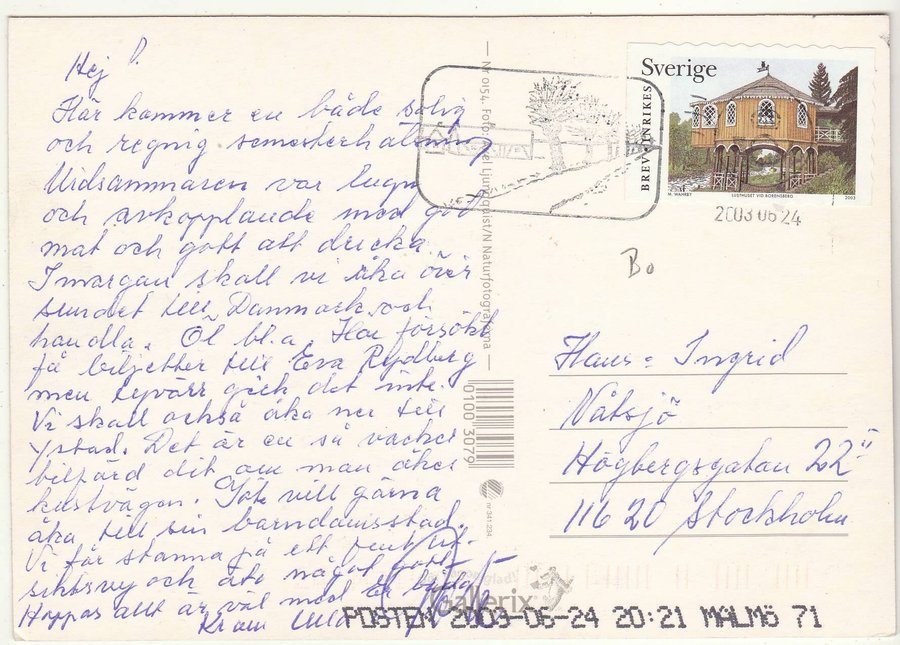 Hej P.
Här kommer en både solig
och regnig semesterhälsning
Midsammaren var lugn
och avkopplande med god
mat och gott att dricka.
I morgan skall vi åka över
sundet till Danmark och
handla. Öl bl.a. Har försökt
få biljetter till Eva Rydberg
men tyvärr gick det inte.
Vi skall också åka ner till
Ystad. Det är en så vacker
bilfärd dit om man åker
kustvägen. Göte vill gärna
åka till sin barndomsstad.
Vi får stanna på ett
och äta något gott
Hoppas allt är väl med er båda
Kram Ulla
Nr 0154. Foto: Axel Ljungquist/N Naturfotograferna
0100 3079
nr 341 234
Gallerix
Sverige
BREV INRIKES
M. WAHREY
LUSTHUSET VID BORENSBERG
2003
2003 06 24
Bo
Hans - Ingrid
Nåtsjö
Högbergsgatan 22"
116 20 Stockholm
POSTEN 2003-06-24 20:21 MALMÖ 71